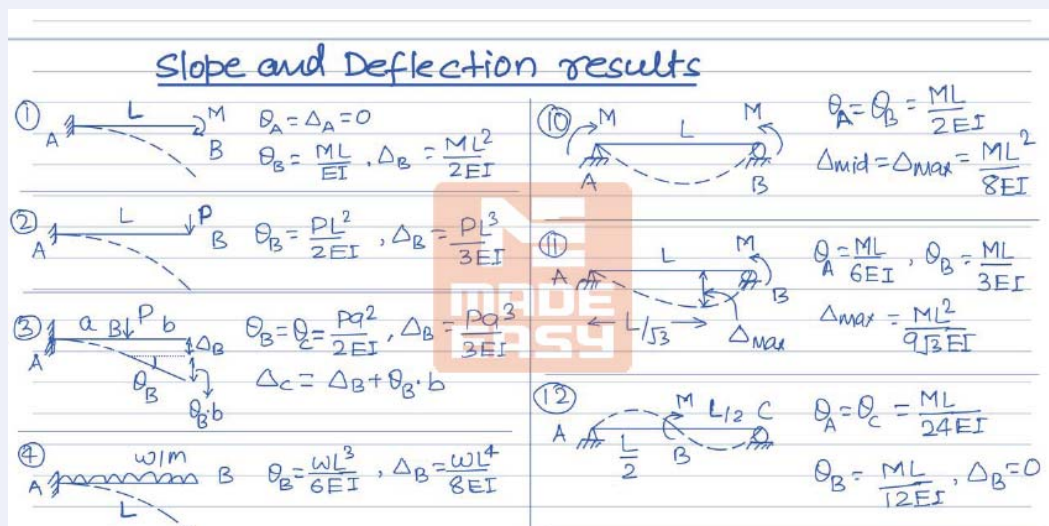 Slope and Deflection results
① L M A B θA = ΔA = 0
θB = ML/EI , ΔB = ML²/2EI
② L P A B θB = PL²/2EI , ΔB = PL³/3EI
③ a B P b A ΔB θB θB·b θB = θC = Pa²/2EI , ΔB = Pa³/3EI
ΔC = ΔB + θB·b
④ w/m A B L θB = wL³/6EI , ΔB = wL⁴/8EI
⑩ M L M A B θA = θB = ML/2EI
Δmid = Δmax = ML²/8EI
⑪ L M A B L/√3 Δmax θA = ML/6EI , θB = ML/3EI
Δmax = ML²/9√3EI
⑫ M L/2 C A L/2 B θA = θC = ML/24EI
θB = ML/12EI , ΔB = 0
MADE
EASY